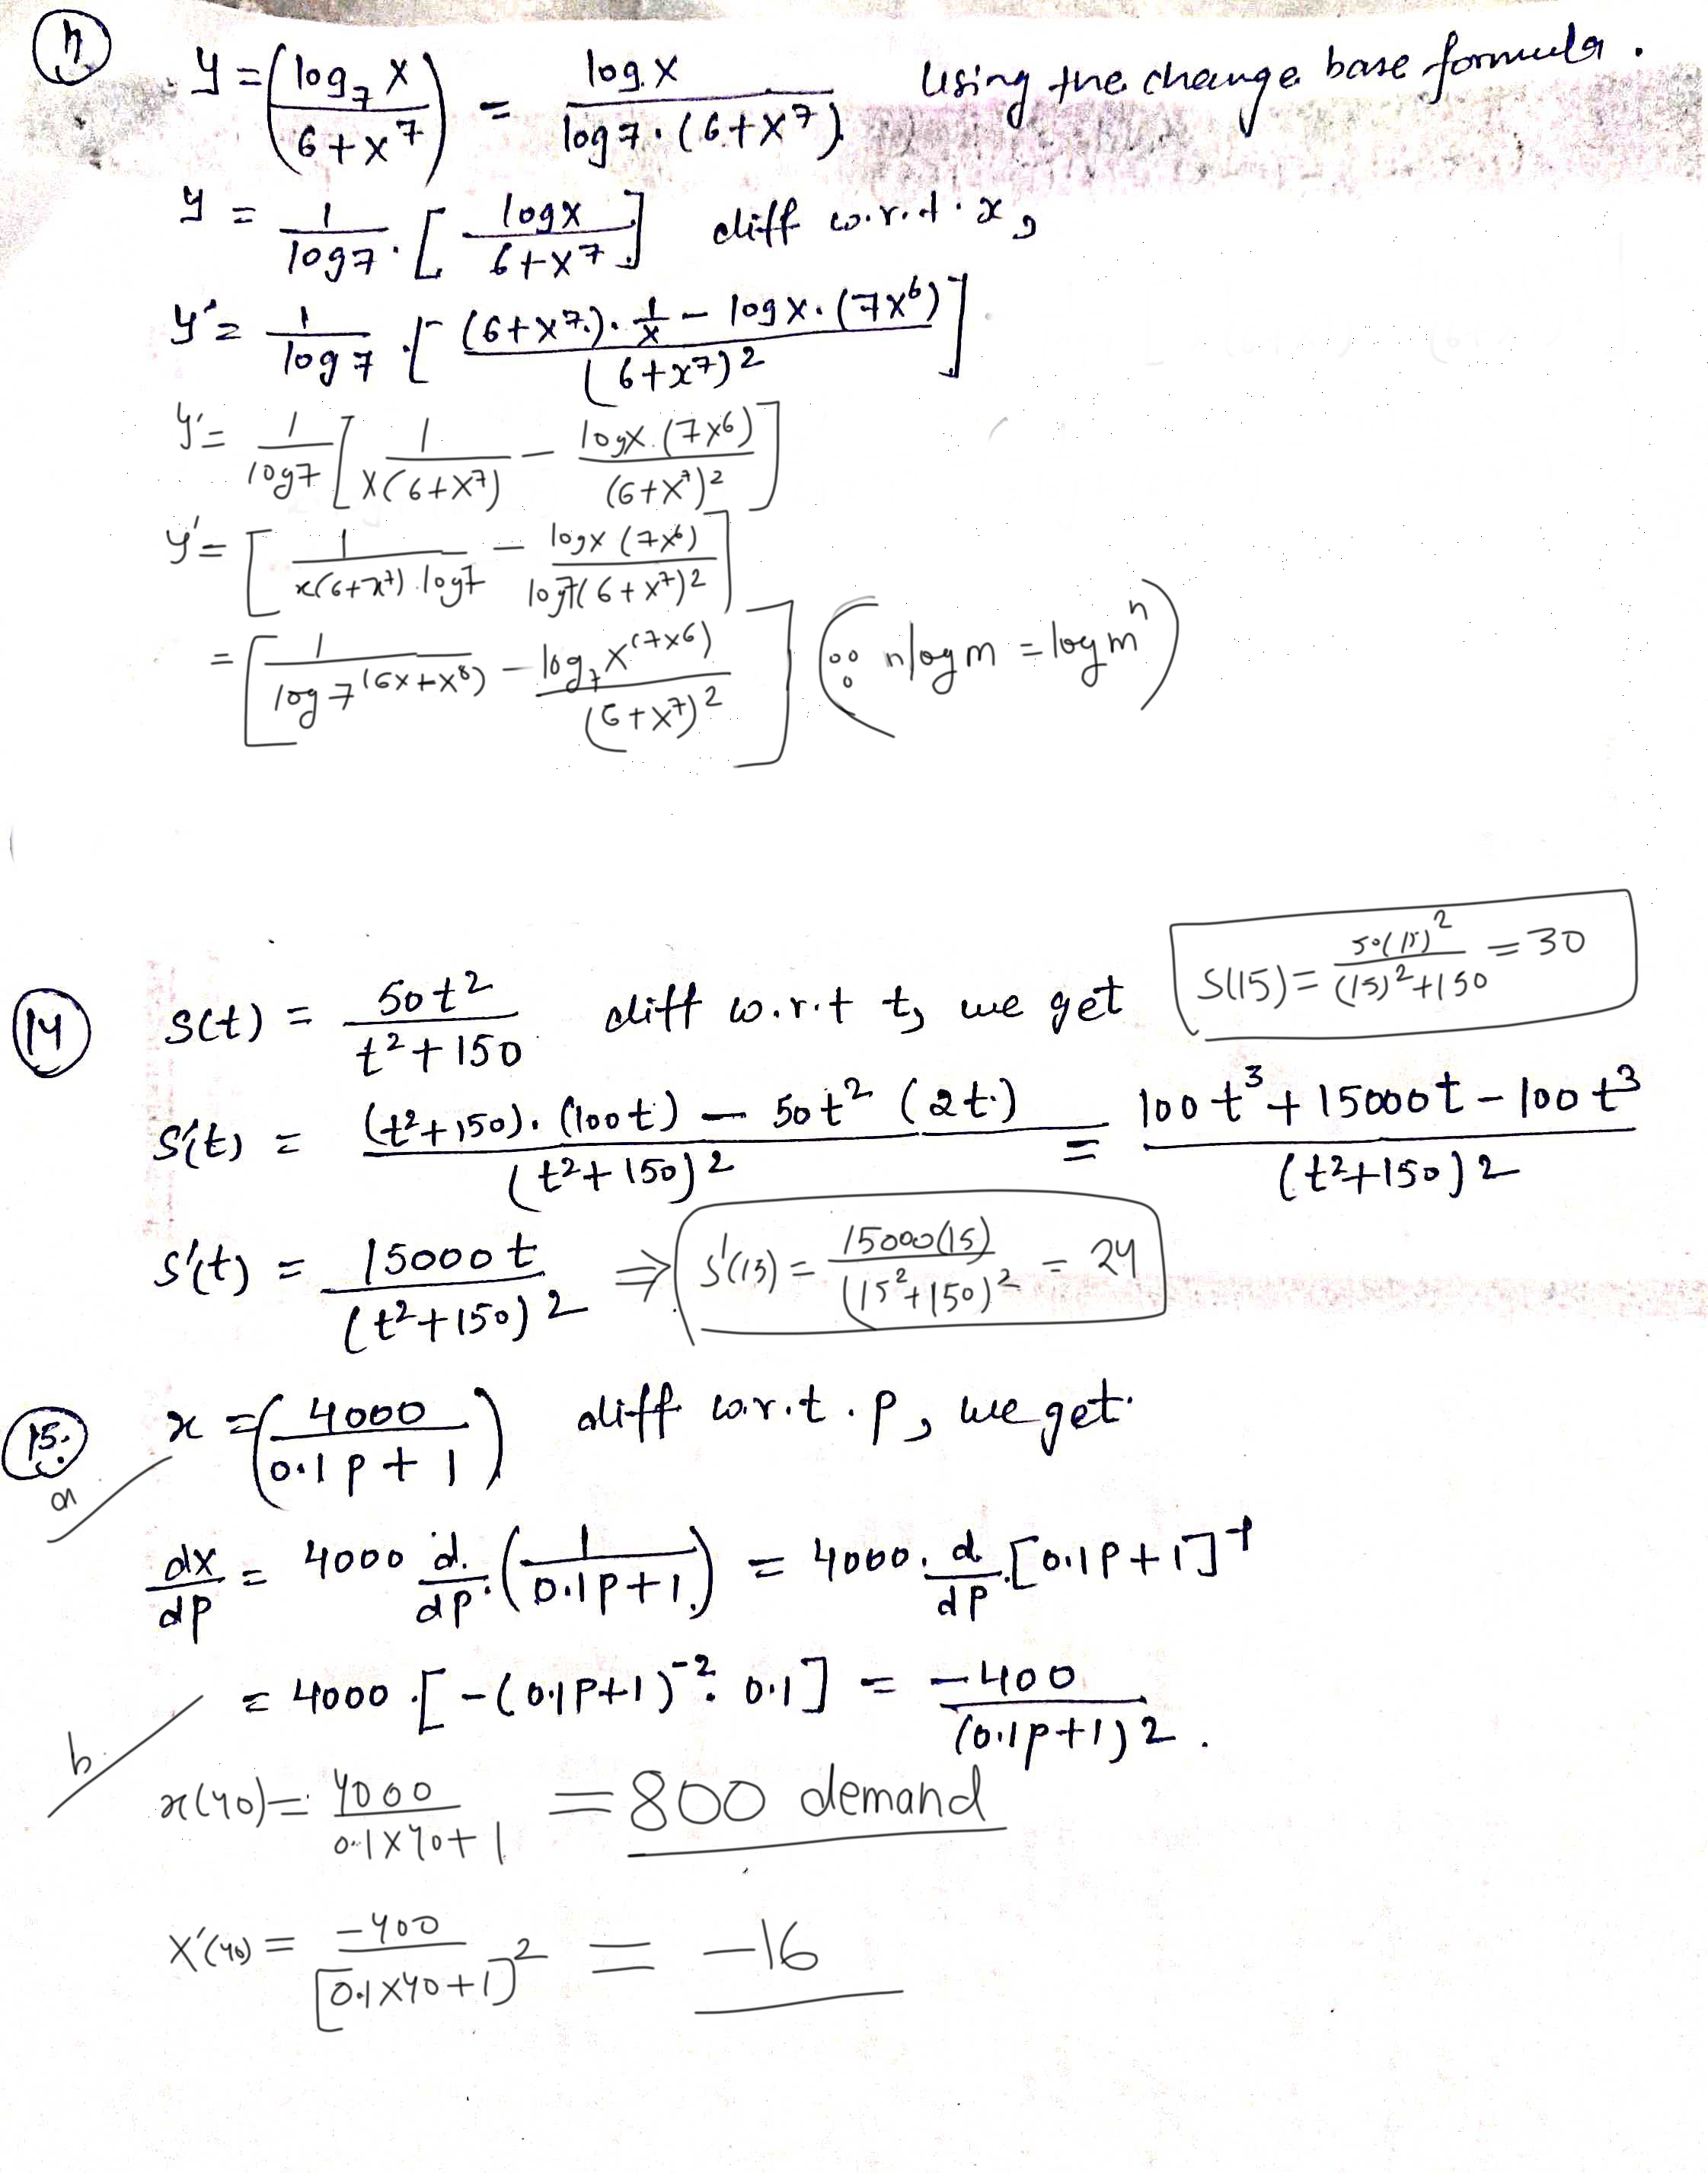 h
y = (log₇ x / 6+x⁷) = log x / log 7 · (6+x⁷) Using the change base formula.
y = 1/log 7 · [log x / 6+x⁷] diff w.r.t. x,
y' = 1/log 7 · [(6+x⁷) · 1/x − log x · (7x⁶) / (6+x⁷)²]
y' = 1/log 7 [1 / x(6+x⁷) − log x · (7x⁶) / (6+x⁷)²]
y' = [1 / x(6+x⁷) · log 7 − log x (7x⁶) / log 7 (6+x⁷)²]
= [1 / log 7^(6x+x⁸) − log₇ x^(7x6) / (6+x⁷)²] (∵ n log m = log mⁿ)
S(15) = 50(15)² / (15)²+150 = 30
14 s(t) = 50t² / t²+150 diff w.r.t t, we get
s'(t) = (t²+150) · (100t) − 50t² (2t) / (t²+150)² = 100t³ + 15000t − 100t³ / (t²+150)²
s'(t) = 15000t / (t²+150)² ⇒ s'(15) = 15000(15) / (15²+150)² = 24
15. x = (4000 / 0.1p + 1) diff w.r.t. p, we get.
a
dx/dp = 4000 d/dp · (1 / 0.1p+1) = 4000 · d/dp · [0.1p+1]⁻¹
= 4000 · [−(0.1p+1)⁻² · 0.1] = −400 / (0.1p+1)².
b.
x(40) = 4000 / 0.1×40+1 = 800 demand
x'(40) = −400 / [0.1×40+1]² = −16